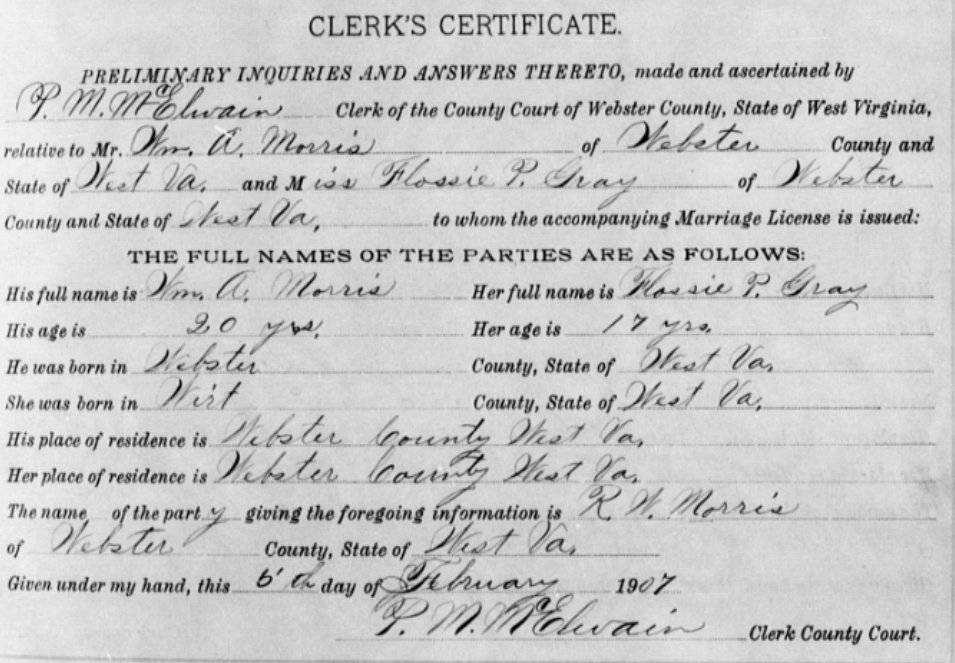 CLERK'S CERTIFICATE.
PRELIMINARY INQUIRIES AND ANSWERS THERETO, made and ascertained by
P. M. McElwain Clerk of the County Court of Webster County, State of West Virginia,
relative to Mr. Wm. A. Morris of Webster County and
State of West Va. and Miss Flossie P. Gray of Webster
County and State of West Va, to whom the accompanying Marriage License is issued:
THE FULL NAMES OF THE PARTIES ARE AS FOLLOWS:
His full name is Wm. A. Morris Her full name is Flossie P. Gray
His age is 20 yrs. Her age is 17 yrs.
He was born in Webster County, State of West Va.
She was born in Wirt County, State of West Va.
His place of residence is Webster County West Va.
Her place of residence is Webster County West Va.
The name of the party giving the foregoing information is R. W. Morris
of Webster County, State of West Va.
Given under my hand, this day of February 1907
P. M. McElwain Clerk County Court.